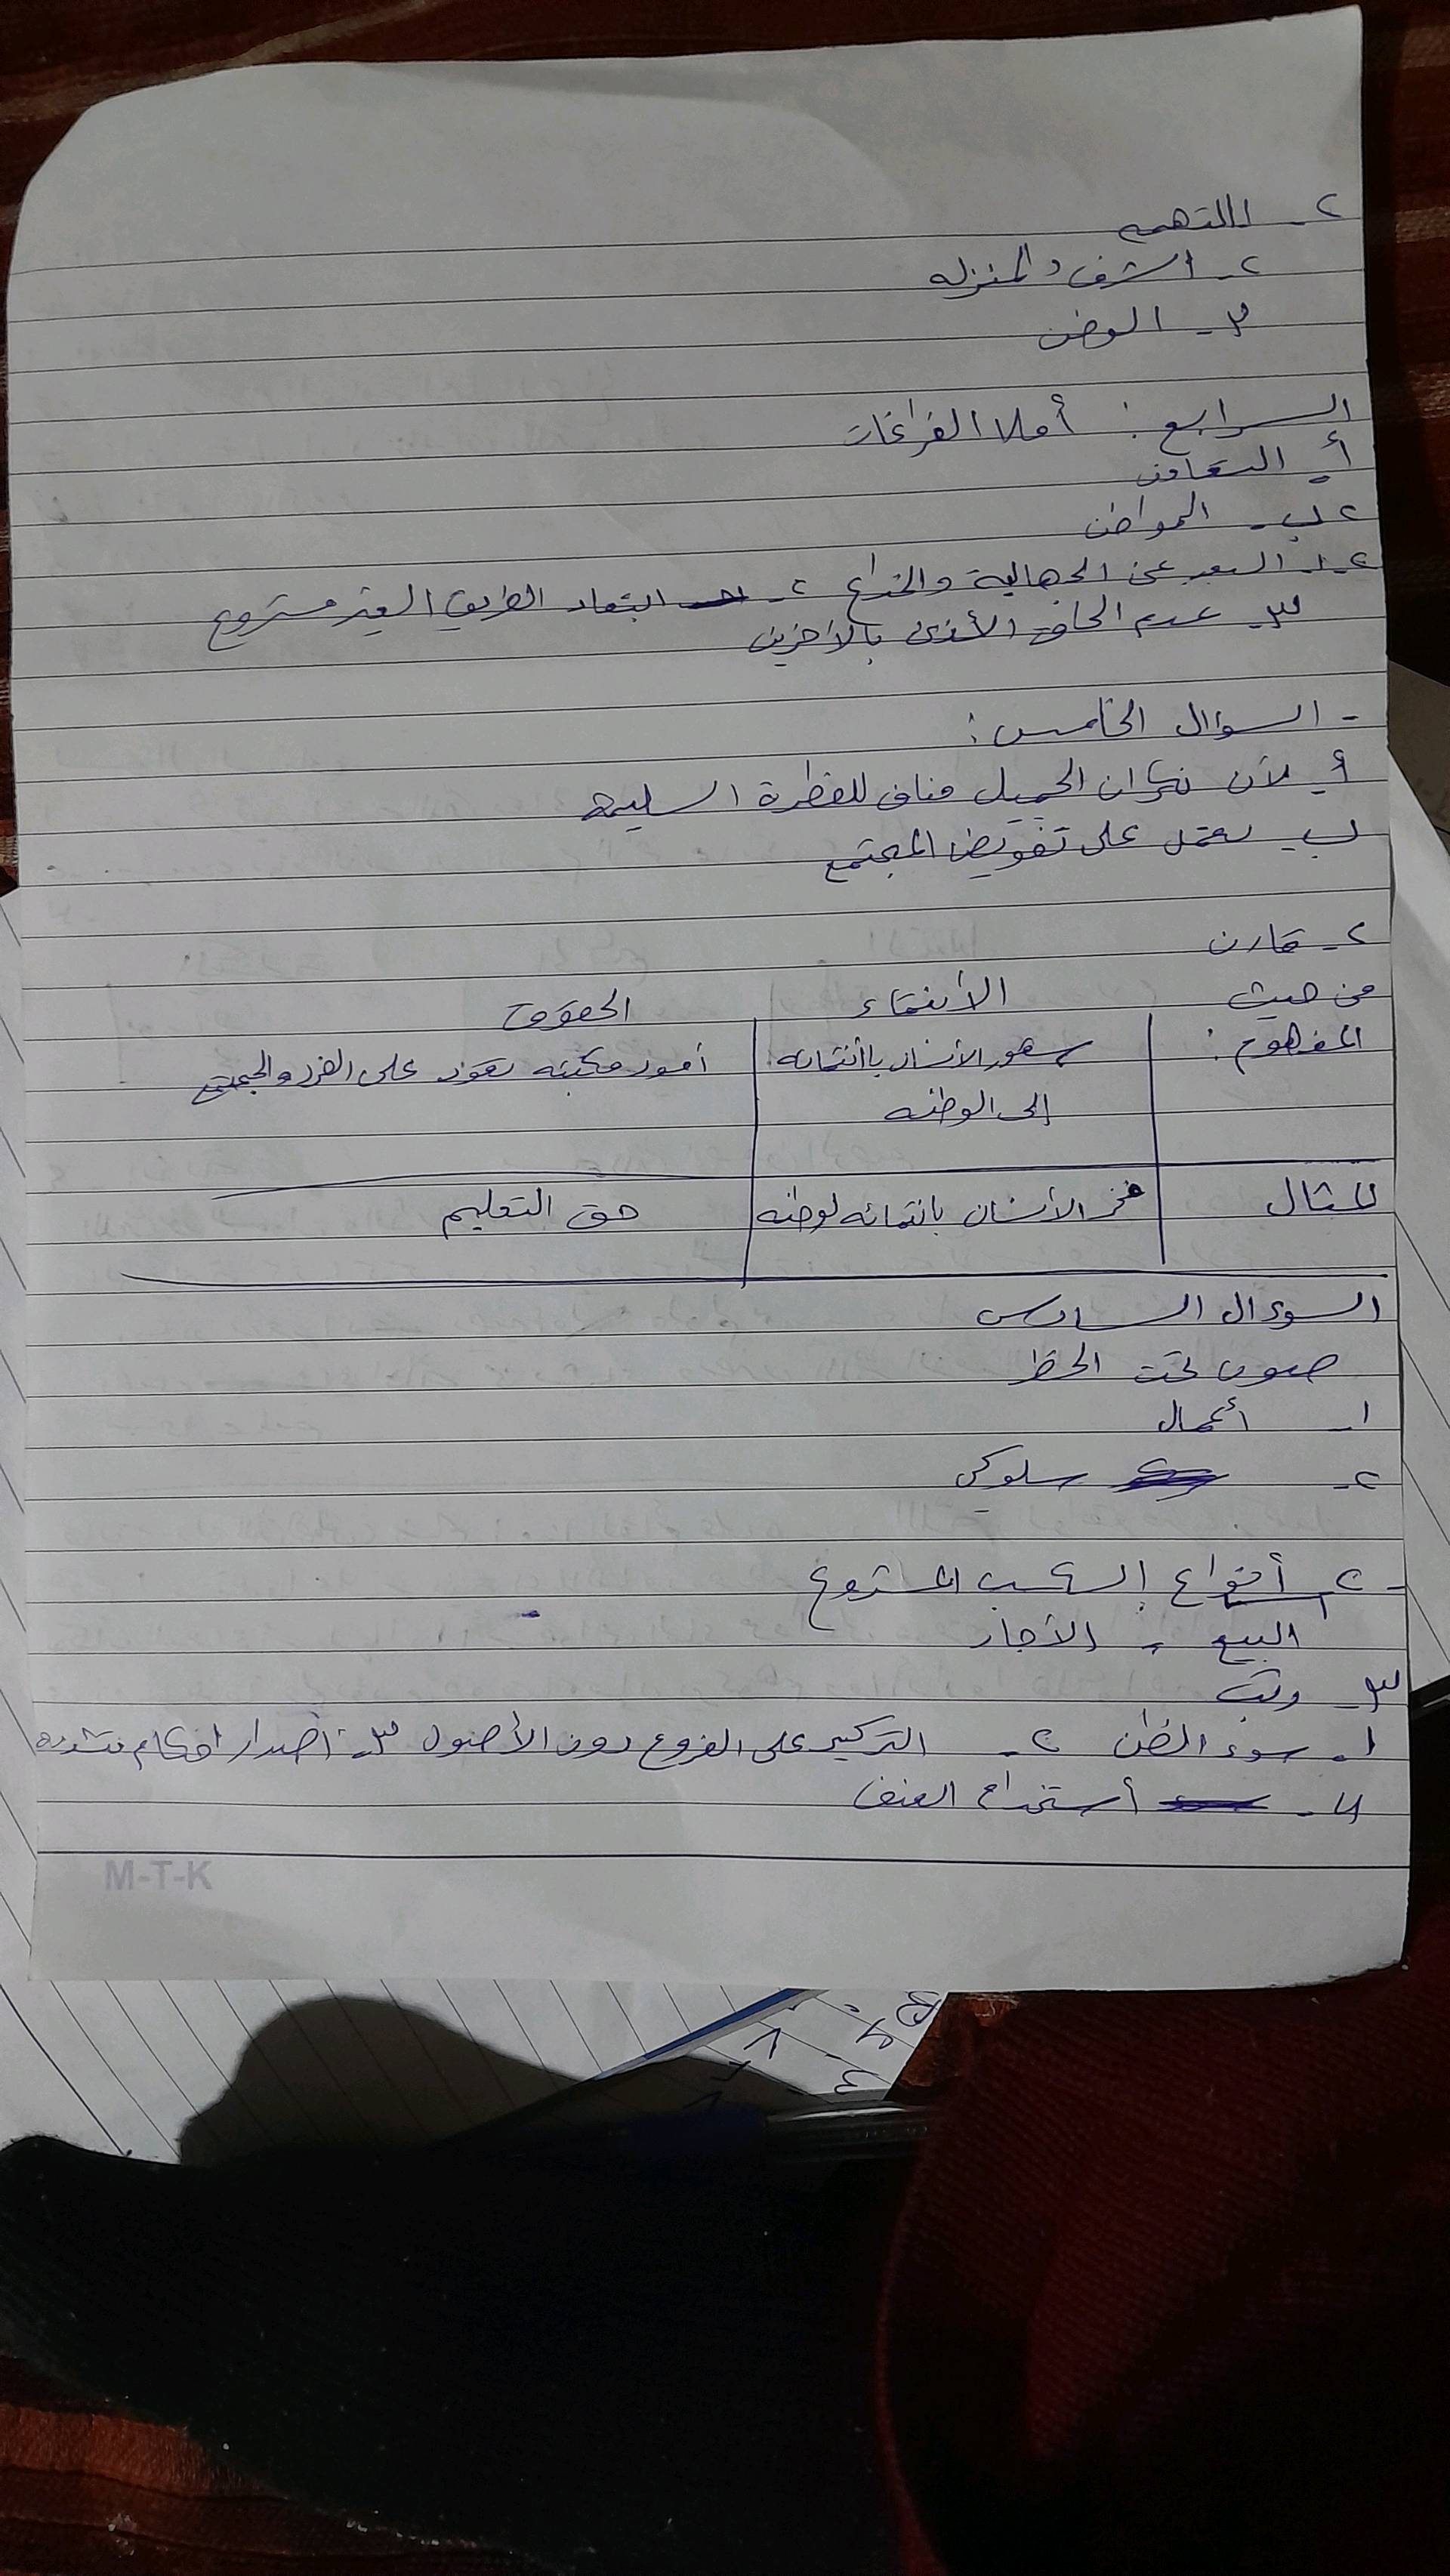 ٢- االتهمه
٢- الشرف والمنزله
٣- الوطن
الرابع : أملا الفراغات
أ- التعاون
٢ ب- المواطن
٢- ١- البعد عن الجهالية والخداع ٢- ابتعاد الطريق الغير مشروع
٣- عدم الحاق الأذى بالآخرين
- السؤال الخامس :
أ- لأن نكران الجميل مناف للفطرة السليمه
ب- يعمل على تقويض المجتمع
٢- قارن
من حيث الأنتماء الحقوق
المفهوم : شعور الأنسان باأنتمائه أمور مكتبته تعود على الفرد والمجتمع
إلى الوطنه
المثال فخر الأنسان بانتمائه لوطنه حق التعليم
السوءال السادس
صوب تحت الخط
١- أعمال
٢- سلوكي
- ٢- أنواع الكسب المشروع
البيع ، الأجار
٣- رتب
١- سوء الظن ٢- التركيز على الفروع دون الأصول ٣- أصدار احكام متشدده
٤- أستخداع العنف
M-T-K